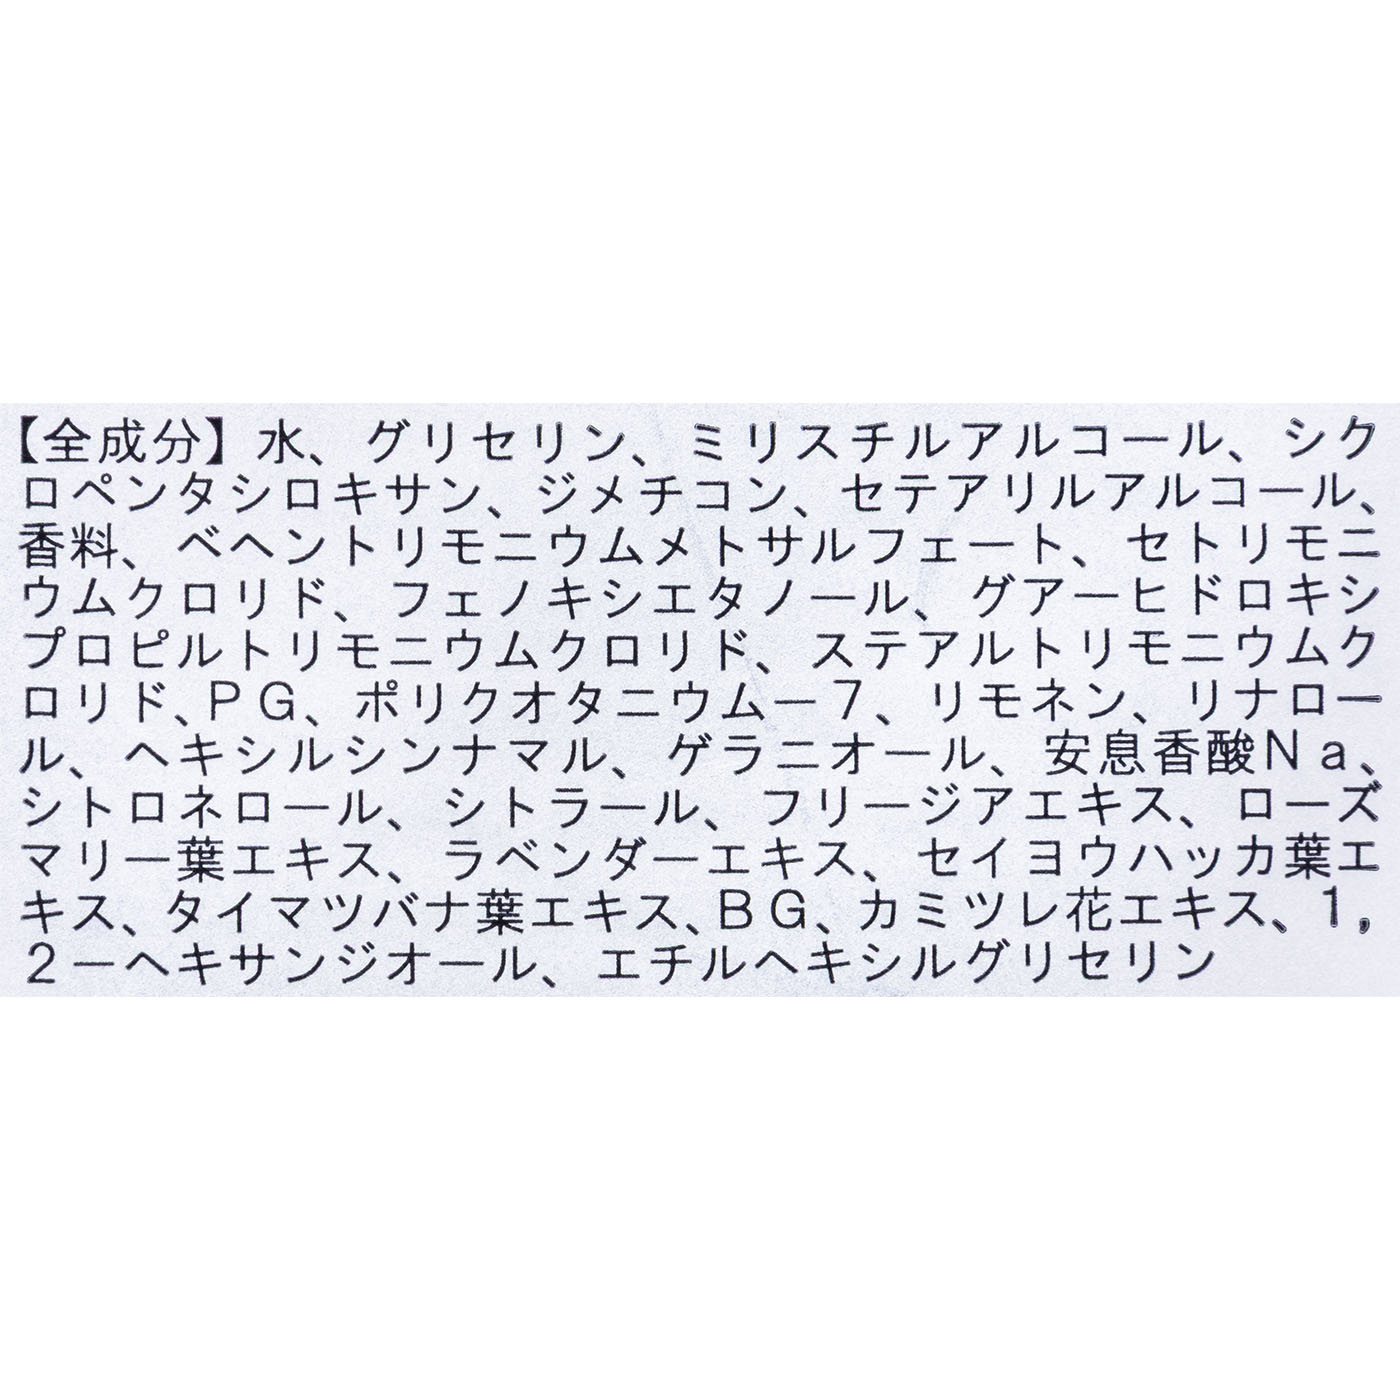 【全成分】水、グリセリン、ミリスチルアルコール、シク
ロペンタシロキサン、ジメチコン、セテアリルアルコール、
香料、ベヘントリモニウムメトサルフェート、セトリモニ
ウムクロリド、フェノキシエタノール、グアーヒドロキシ
プロピルトリモニウムクロリド、ステアルトリモニウムク
ロリド、PG、ポリクオタニウム−7、リモネン、リナロー
ル、ヘキシルシンナマル、ゲラニオール、安息香酸Na、
シトロネロール、シトラール、フリージアエキス、ローズ
マリー葉エキス、ラベンダーエキス、セイヨウハッカ葉エ
キス、タイマツバナ葉エキス、BG、カミツレ花エキス、1,
2−ヘキサンジオール、エチルヘキシルグリセリン